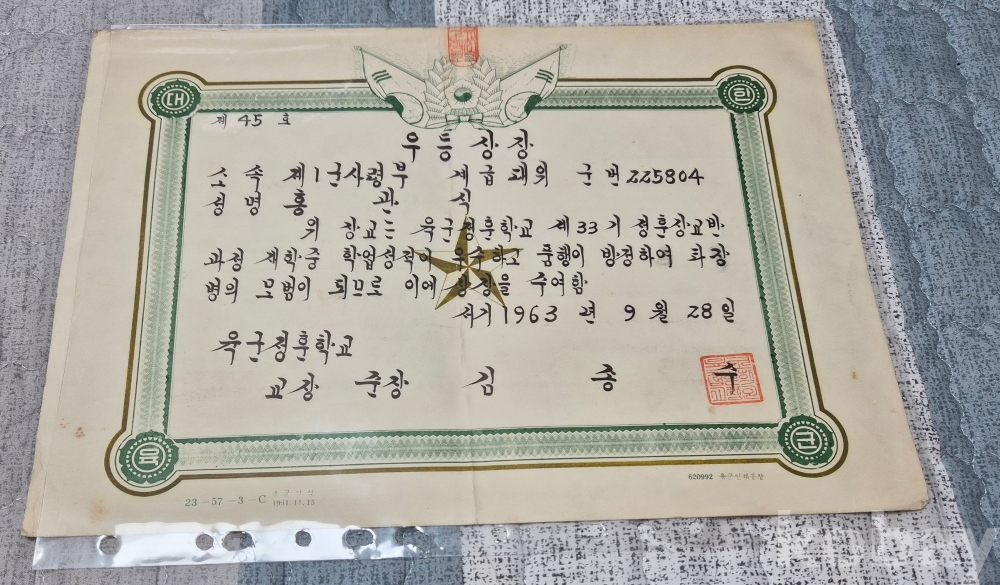 대 한
제 45 호
우 등 상 장
소 속 제1군사령부 계급 대위 군번 225804
성 명 홍 관 식
위 장교는 육군정훈학교 제33기 정훈장교반
과정 재학중 학업성적이 우수하고 품행이 방정하여 타장
병의 모범이 되므로 이에 상장을 수여함
서기 1963 년 9 월 28 일
육군정훈학교
교장 준장 김 종 수
육 군
620992 육군인쇄공창
23-57-3-C
1961.11.15